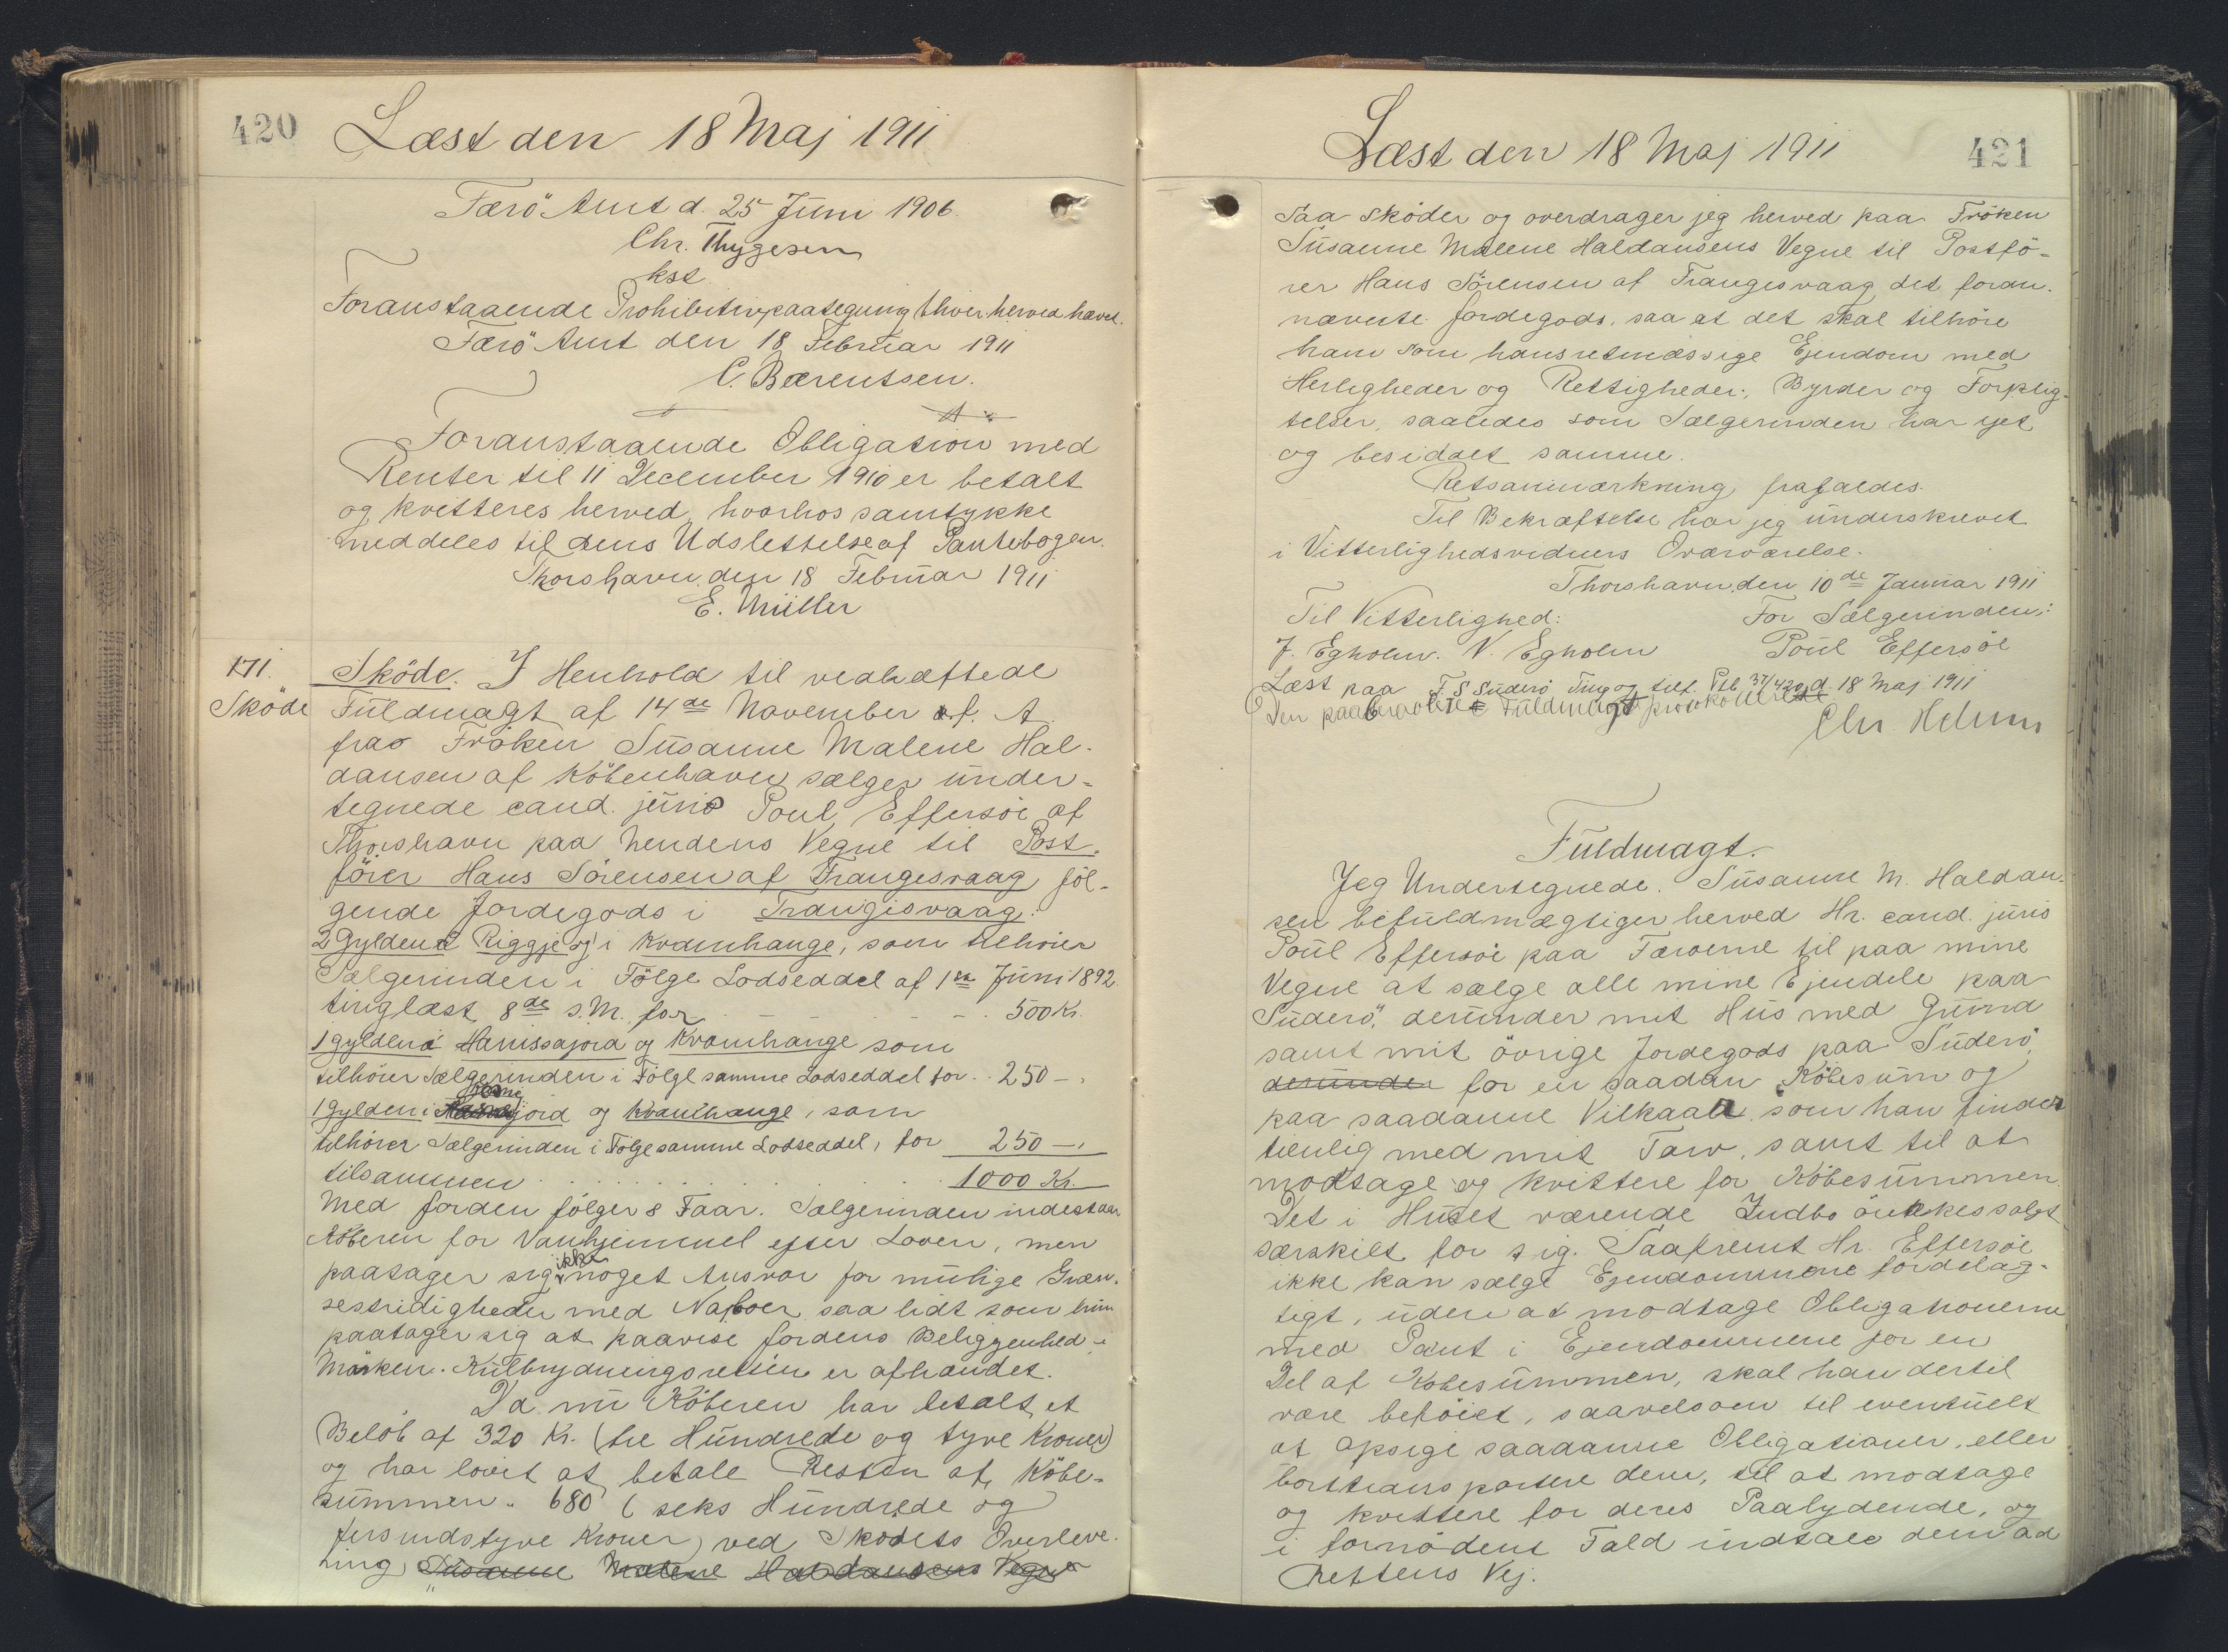 420
Læst den 18 Maj 1911
Færö Amt d. 25 Juni 1906.
Chr. Thygesen
kst
Foranstaaende Prohibitivpaategning bliver herved hævet.
Færö Amt den 18 Februar 1911
C. Bærentsen.
Foranstaaende Obligation med
Renter til 11 December 1910 er betalt
og kvitteres herved, hvorhos samtykke
meddeles til dens Udslettelse af Pantebogen.
Thorshavn, den 18 Februar 1911
E. Müller
171.
Sköde. I Henhold til vedhæftede
Sköde
Fuldmagt af 14de November f. A.
fra Fröken Susanne Malene Hal-
dansen af Köbenhavn sælger under-
tegnede cand. juris Poul Effersöe af
Thorshavn paa hendes Vegne til Post-
förer Hans Sörensen af Trangesvaag föl-
gende Jordegods i Trangisvaag:
2 Gylden i Riggje og i Kvamhange, som tilhörer
Sælgerinden i Fölge Lodseddel af 1ste Juni 1892.
tinglæst 8de s. M. for - - - - 500 Kr.
1 gylden i Hanissajord og Kvamhange som
tilhörer Sælgerinden i Fölge samme Lodseddel for . . 250 - ,
1 Gylden i jord og Kvamhange, som
tilhörer Sælgerinden i Fölge samme Lodseddel, for 250 - ,
tilsammen . . . . . . . 1000 Kr.
Med Jorden fölger 8 Faar. Sælgerinden indestaar
Köberen for Vanhjemmel efter Loven, men
paatager sig ikke noget Ansvar for mulige Græn-
sestridigheder med Naboer saa lidt som hun
paatager sig at paavise Jordens Beliggenhed i
Marken. Kulbrydningsretten er afhændet.
Da nu Köberen har betalt et
Belöb af 320 Kr. (tre Hundrede og tyve Kroner)
og har lovet at betale Resten af Köbe-
summen 680 (seks Hundrede og
firsindstyve Kroner) ved Skodets Overleve-
ring Susanne Malene Haldansens Vegne
Læst den 18 Maj 1911
421
saa sköder og overdrager jeg herved paa Fröken
Susanne Malene Haldansens Vegne til Postfö-
rer Hans Sörensen af Trangesvaag det foran-
nævnte Jordegods, saa at det skal tilhöre
ham som hans retmæssige Ejendom med
Herligheder og Rettigheder, Byrder og Forplig-
telser, saaledes som Sælgerinden har ejet
og besiddet samme.
Retsanmærkning frafaldes.
Til Bekræftelse har jeg underskrevet
i Vitterlighedsvidners Overværelse.
Thorshavn, den 10de Januar 1911
Til Vitterlighed: For Sælgerinden:
J. Egholm. N. Egholm Poul Effersöe
Læst paa F. S Suderö Ting og tilf. Ptb 37/420 d 18 Maj 1911
Den paaberaabte Fuldmagt protokolleret
Chr. Helms
Fuldmagt.
Jeg Undertegnede. Susanne M. Haldan-
sen befuldmægtiger herved Hr. cand. juris
Poul Effersöe paa Færoerne til paa mine
Vegne at sælge alle mine Ejendele paa
Suderö, derunder mit Hus med Grund
samt mit övrige Jordegods paa Suderö,
derunder for en saadan Köbesum og
paa saadanne Vilkaar som han finder
tienlig med mit Tarv, samt til at
modtage og kvittere for Köbesummen.
Det i Huset værende Indbo önskes solgt
særskilt for sig. Saafremt Hr. Effersöe
ikke kan sælge Ejendommene fordelag-
tigt, uden at modtage Obligationerne
med Pant i Ejendommene for en
Del af Kobesummen, skal han dertil
være beföiet, saavelsom til eventuelt
at opsige saadanne Obligationer, eller
borttransportere dem, til at modtage
og kvittere for deres Paalydende, og
i fornödent Fald indtale dem ad
Rettens Vej.